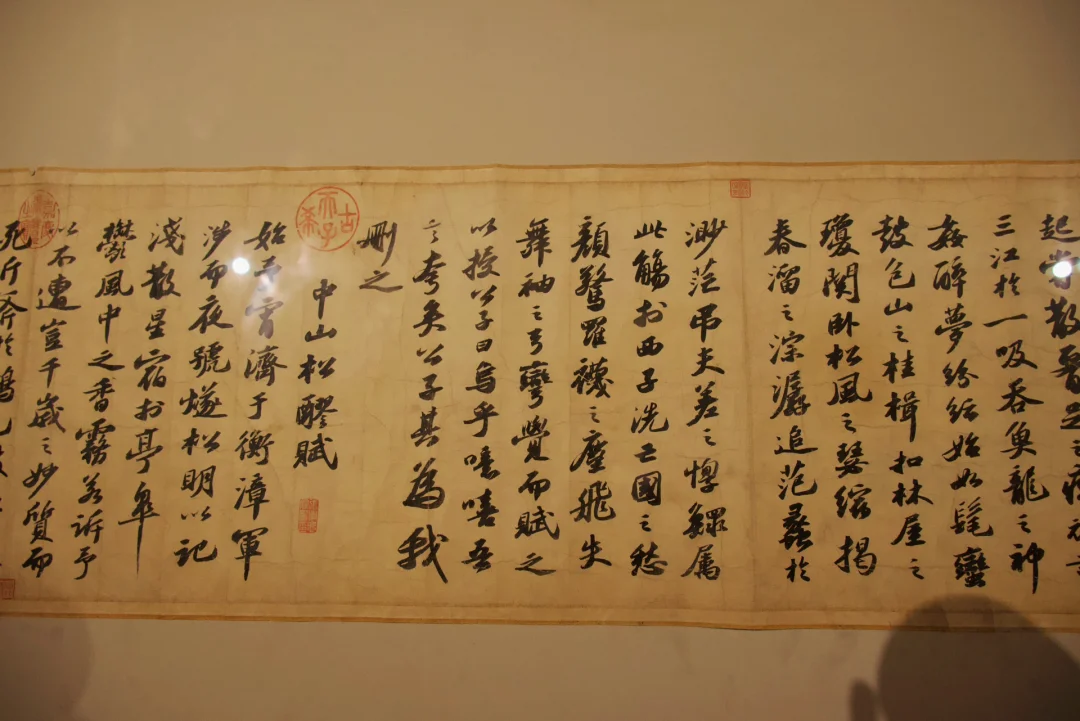 起嘗散腰足之痹頑盡
三江於一吸吞魚龍之神
姦醉夢紛紜始如髦蠻
鼓包山之桂楫扣林屋之
瓊關臥松風之瑟縮揭
春溜之淙潺追范蠡於
渺茫吊夫差之惸鰥屬
此觴於西子洗亡國之愁
顏驚羅襪之塵飛失
舞袖之弓彎覺而賦之
以授公子曰烏乎噫嘻吾
言夸矣公子其為我
刪之
古希天子
中山松醪賦
始予宵濟于衡漳軍
涉而夜號燧松明以記
淺散星宿於亭皋
鬱風中之香霧若訴予
以不遭豈千歲之妙質而
死斤斧於鴻毛